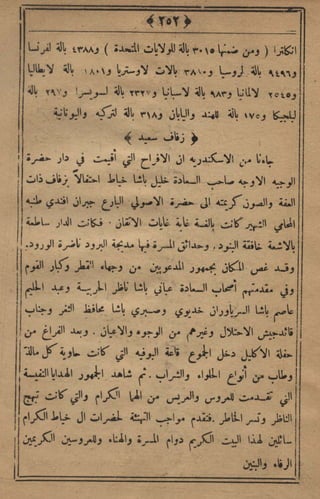 ﴿ ٢٥٢ ﴾
انكلترا ( ومن ضمنها ٣٠١٥ بالة للولايات المتحدة ) و٤٣٨٨ بالة لفرنسا
و٩٤٩٦ بالة لروسيا و٣٨١٠ بالات لاوستريا و١٨٠١ بالة لايطاليا
و٢٥٤٥ لالمانيا و٩٨٣ بالة لاسبانيا و٢٣٢٧ بالة لسويسرا و٢٩٧ بالة
لبلجيكا و١٧٥ بالة للهند واليابان و٣١٨ بالة لتركيه واليونانية
﴿ زفاف سعيد ﴾
جاءنا من الاسكندريه ان الافراح التي أقيمت في دار حضرة
الوجيه الاوجه صاحب السعادة خليل باشا خياط احتفالاً بزفاف ذات
العفة والصون كريمته الى حضرة الاصولي البارع جبران افندي طنبه
المحامي الشهير كانت بالغة غاية غايات الاتقان . فكانت الدار ساطعة
بالاشعة خافقة البنود . وحدائق المسرة فيها مدبجة البرود ناضرة الورود.
وقد غص المكان بجمهور المدعويين من وجهاء القطر وكبار القوم
وفي مقدمتهم أصحاب السعادة عباني باشا ناظر الحربية وعبد الحليم
عاصم باشا السرياوران خديوي وصبري باشا محافظ الثغر وجناب
قائدجيش الاحتلال وغيرهم من الوجوه والاعيان . وبعد الفراغ من
حفلة الاكليل دخل الجموع قاعة البوفيه التي كانت حاوية كل مالذ
وطاب من أنواع الحلواء والشراب . ثم شاهد الجمهور الهدايا النفيسة
التي تقدمت للعروس والعريس من الهما الكرام والتي كانت تبهج
الناظر وتسر الخاطر . فنقدم مواجب التهنئة لحضرات ال خياط الكرام
سائلين لهذا البيت الكريم دوام المسرة والهناء وللعروسين الكريمين
الرفاء والبنين